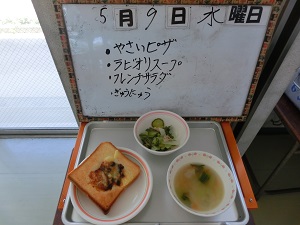 5月9日水曜日
・やさいピザ
・ラビオリスープ
・フレンチサラダ
・ぎゅうにゅう